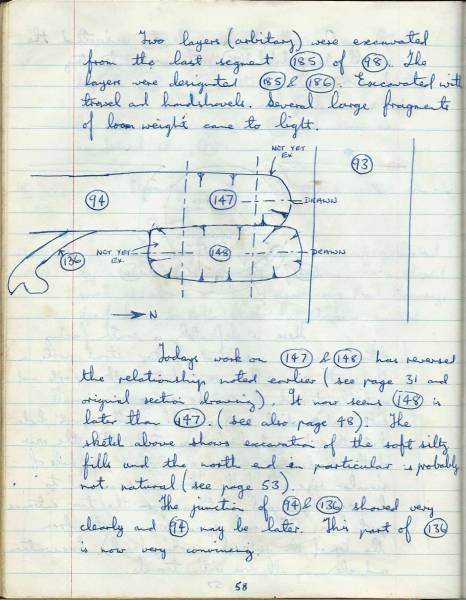 Two layers (arbitary) were excavated
from the last segment (185) of (98). The
layers were designated (185) & (186). Excavated with
trowel and handshovels. Several large fragments
of loom weight came to light.
NOT YET
EX
93
94
147
DRAWN
136
NOT YET
EX.
148
DRAWN
N
Todays work on (147) & (148) has reversed
the relationship noted earlier (see page 31 and
original section drawing). It now seems (148) is
later than (147). (see also page 48). The
sketch above shows excavation of the soft silty
fills and the north end in particular is probably
not natural (see page 53).
The junction of (94) & (136) showed very
clearly and (94) may be later. This part of (136)
is now very convincing.
58